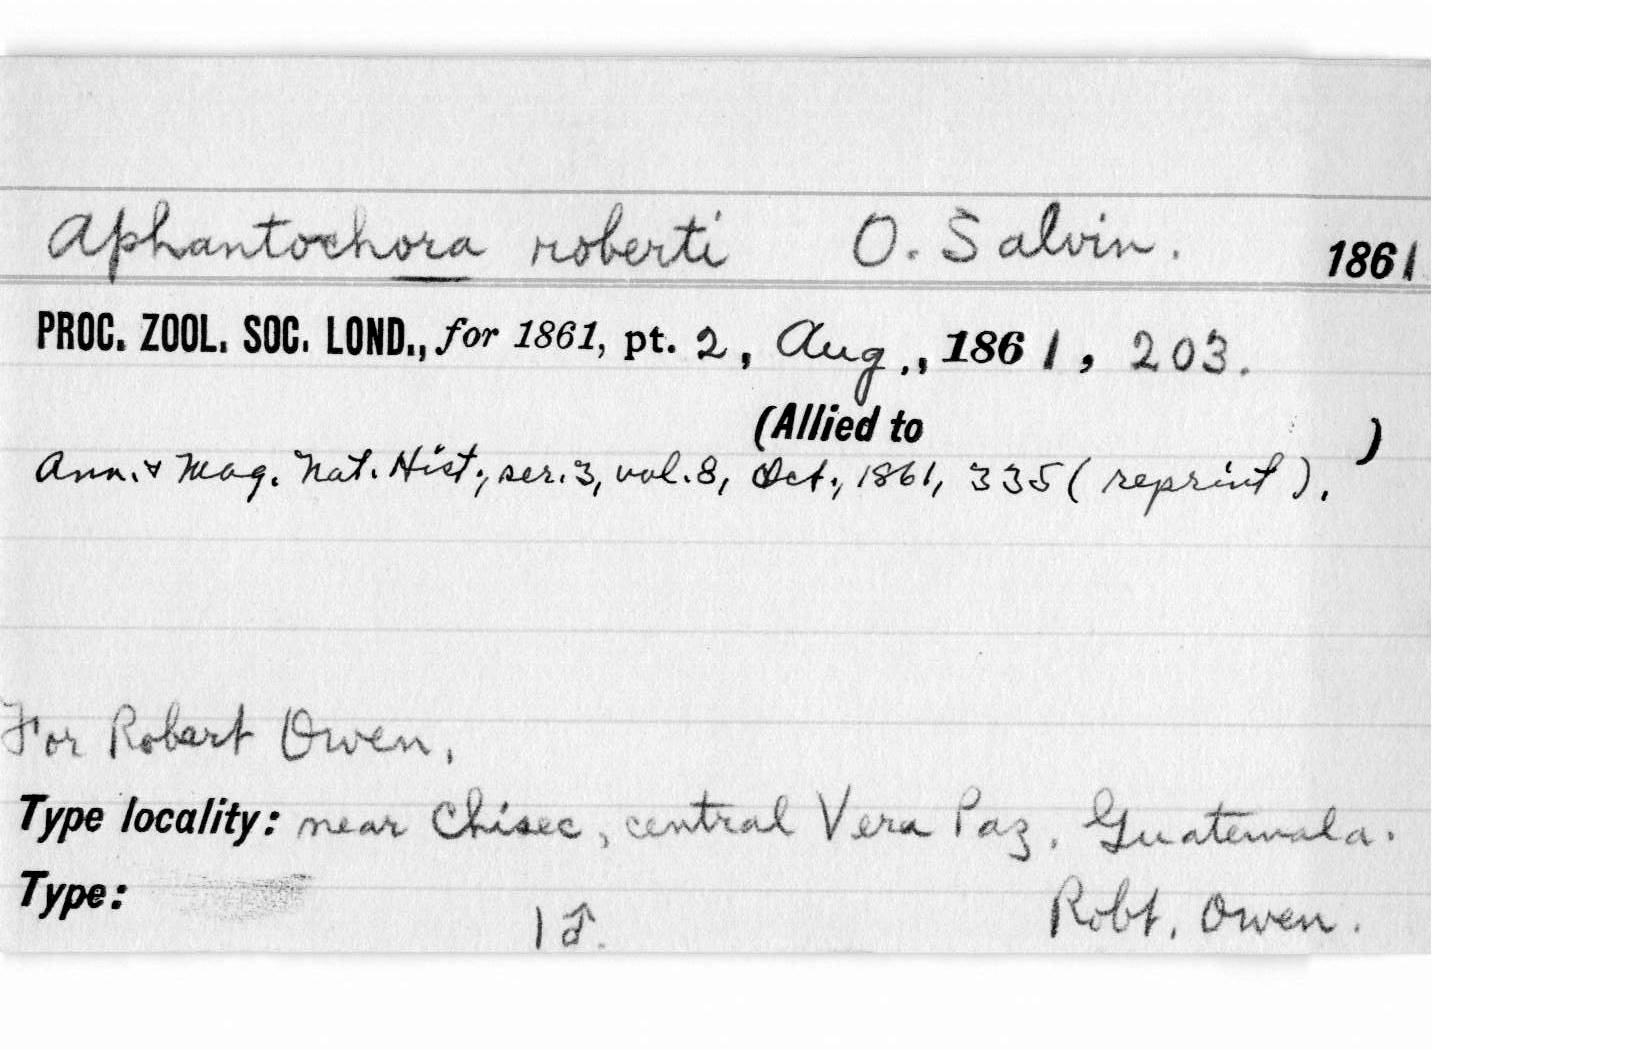 Aphantochora roberti O. Salvin. 1861
PROC. ZOOL. SOC. LOND., for 1861, pt. 2, Aug., 1861, 203.
(Allied to )
Ann. & Mag. Nat. Hist., ser. 3, vol. 8, Oct., 1861, 335 (reprint).
For Robert Owen.
Type locality: near Chisec, central Vera Paz, Guatemala.
Type: 1♂. Robt. Owen.